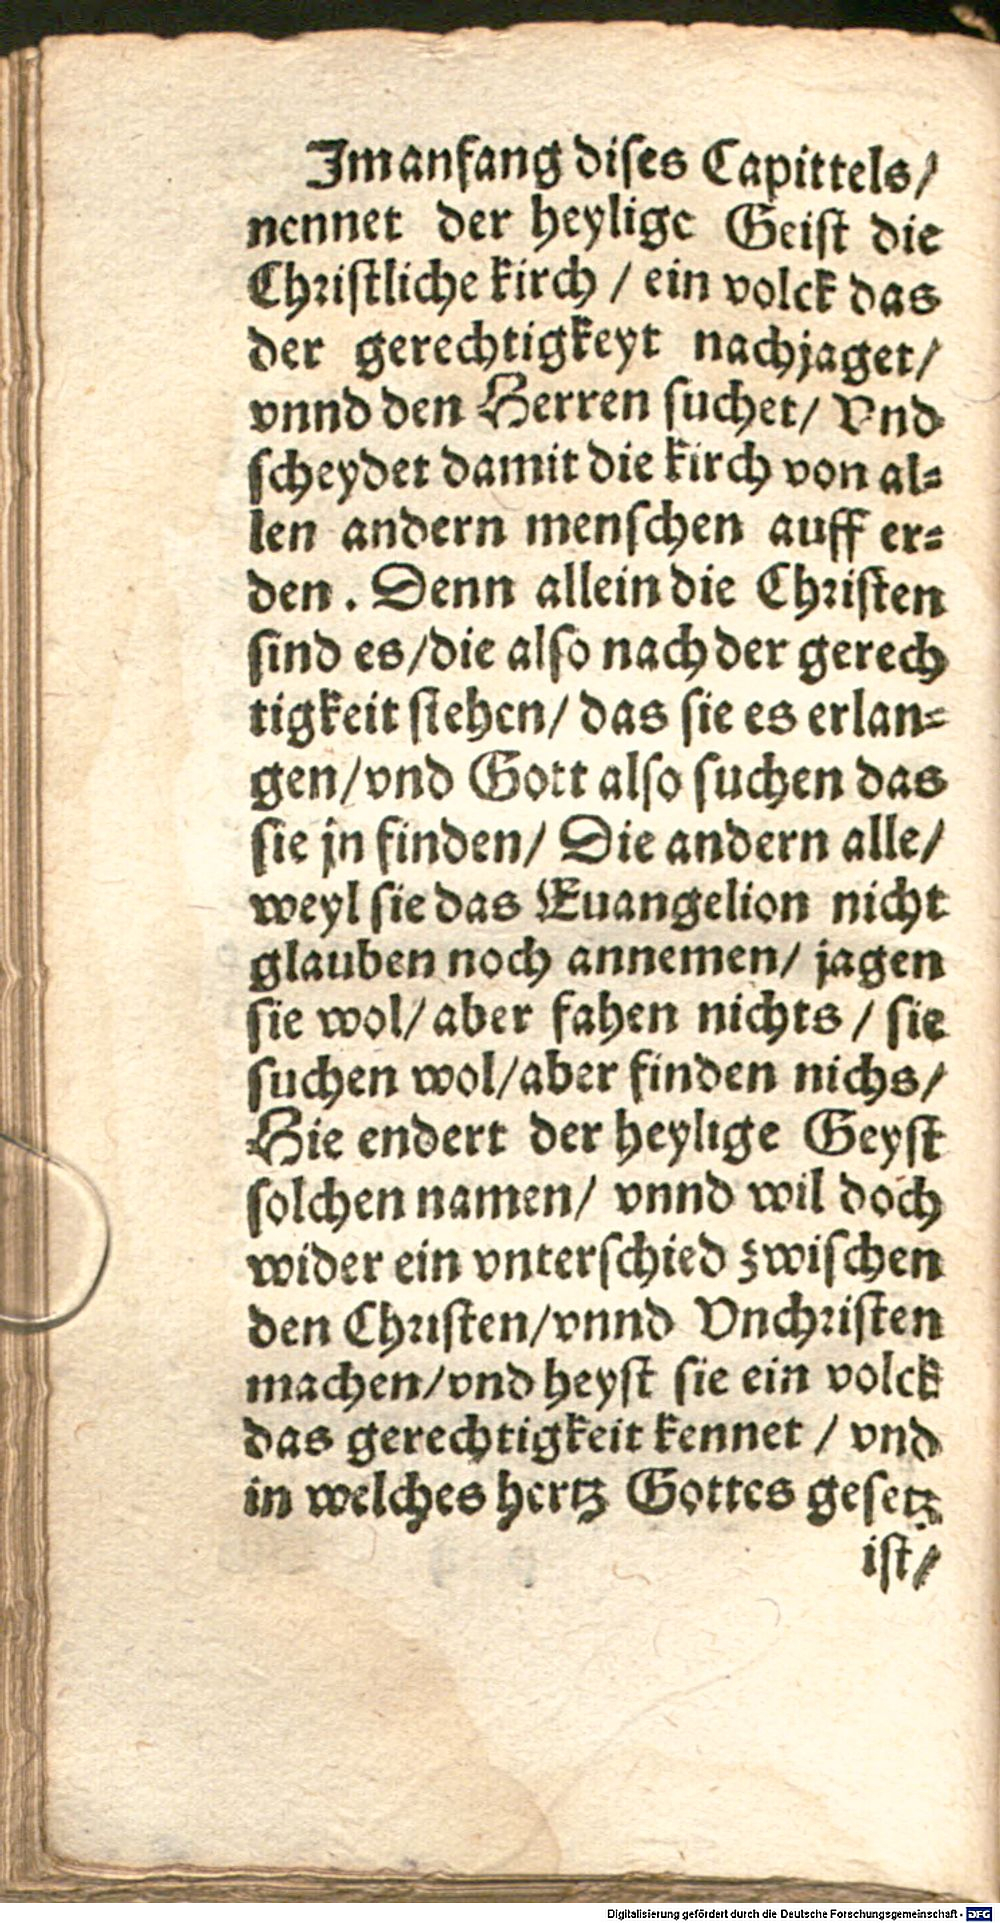 Im anfang dises Capittels/
nennet der heylige Geist die
Christliche kirch / ein volck das
der gerechtigkeyt nachjaget/
vnnd den Herren suchet/ Vnd
scheydet damit die kirch von al⸗
len andern menschen auff er⸗
den . Denn allein die Christen
sind es/die also nach der gerech
tigkeit stehen/ das sie es erlan⸗
gen/vnd Gott also suchen das
sie jn finden/ Die andern alle/
weyl sie das Euangelion nicht
glauben noch annemen/ jagen
sie wol/ aber fahen nichts / sie
suchen wol/aber finden nichs/
Hie endert der heylige Geyst
solchen namen/ vnnd wil doch
wider ein vnterschied zwischen
den Christen/vnnd Vnchristen
machen/vnd heyst sie ein volck
das gerechtigkeit kennet / vnd
in welches hertz Gottes gesetz
ist/
Digitalisierung gefördert durch die Deutsche Forschungsgemeinschaft - DFG